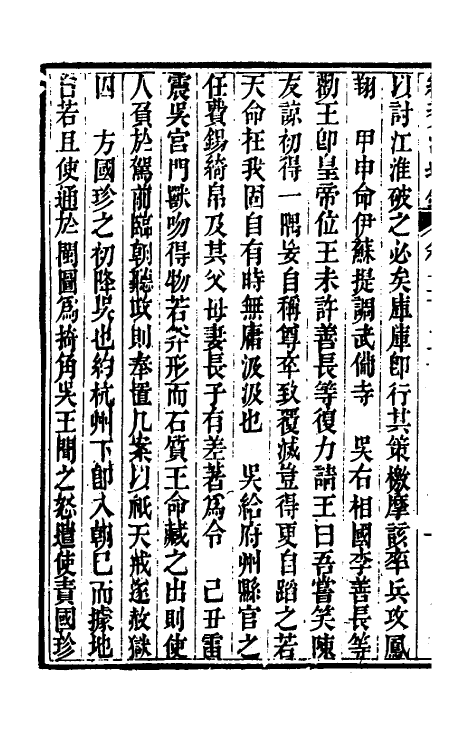 以討江淮破之必矣庫庫卽行其策檄摩該率兵攻鳳
翔　甲申命伊蘇提調武備寺　吳右相國李善長等
勸王卽皇帝位王未許善長等復力請王曰吾嘗笑陳
友諒初得一隅妄自稱尊卒致覆滅豈得更自蹈之若
天命在我固自有時無庸汲汲也　吳給府州縣官之
任費錫綺帛及其父母妻長子有差著爲令　己丑雷
震吳宮門獸吻得物若斧形而石質王命藏之出則使
人負於駕前臨朝聽政則奉置几案以祇天戒遂赦獄
囚　方國珍之初降吳也約杭州下卽入朝已而據地
自若且使通於閩圖爲掎角吳王聞之怒遣使責國珍